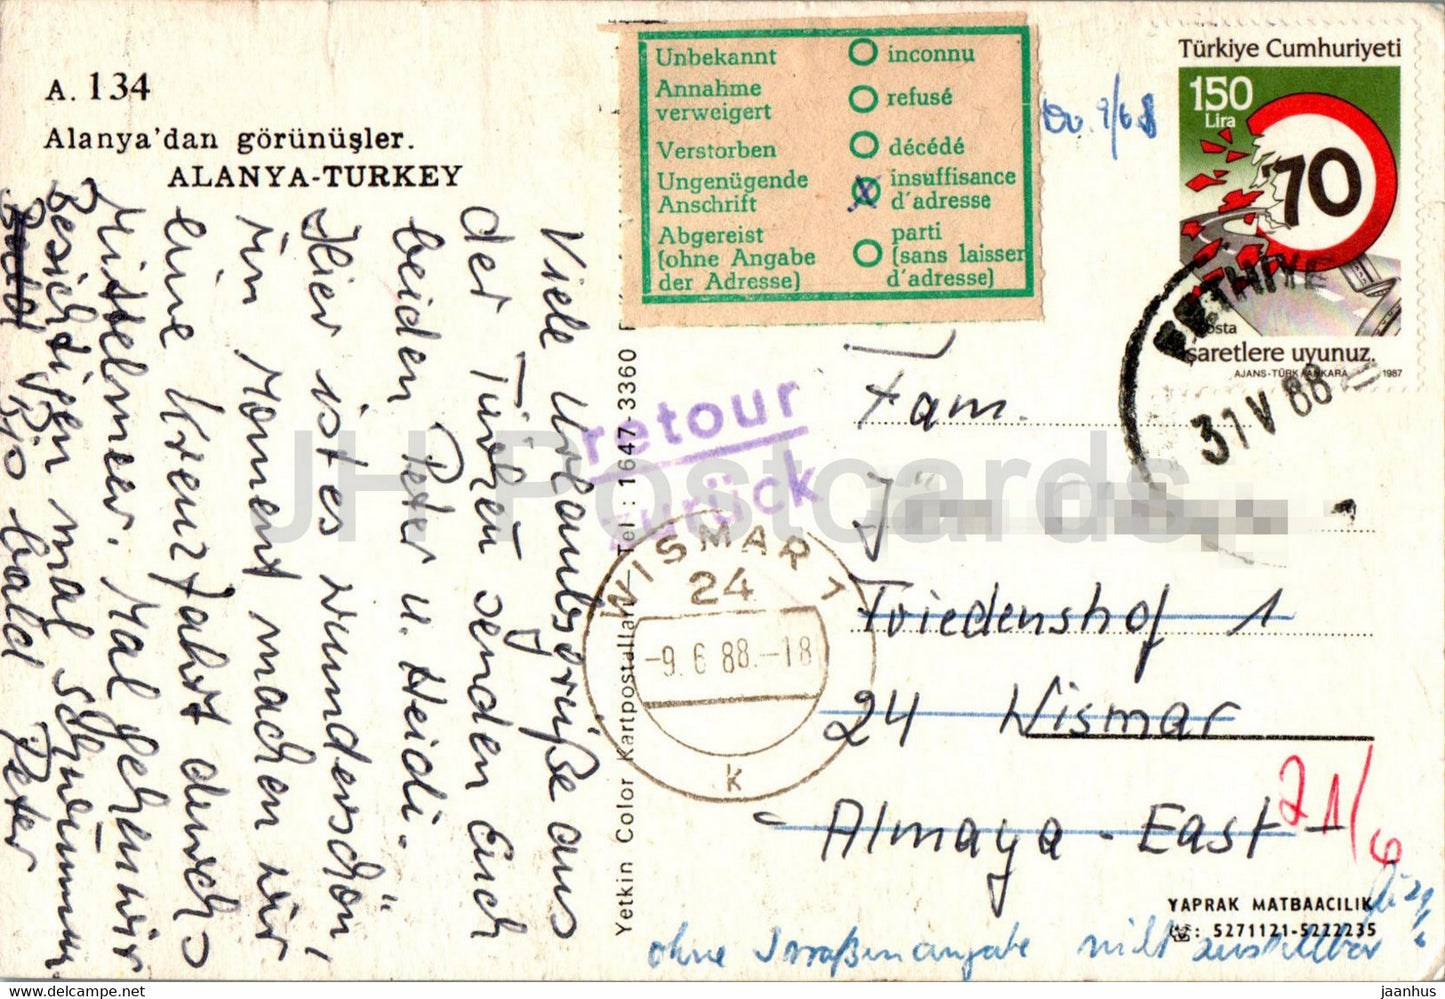 A. 134
Alanya'dan görünüşler.
ALANYA-TURKEY
Viele Urlaubsgrüße aus
der Türkei senden Euch
beiden Peter u. Heidi.
Hier ist es wunderschön,
im Moment machen wir
eine Kreuzfahrt durchs
Mittelmeer. Mal gehen wir
Besichtigen mal schwimmen.
Bis bald Peter
Unbekannt inconnu
Annahme
verweigert refusé
Verstorben décédé
Ungenügende insuffisance
Anschrift d'adresse
Abgereist parti
(ohne Angabe (sans laisser
der Adresse) d'adresse)
Türkiye Cumhuriyeti
150
Lira
70
Posta
işaretlere uyunuz.
AJANS-TÜRK/ANKARA 1987
FETHİYE
31 V 88
retour
zurück
WISMAR 1
24
-9. 6. 88.-18
k
Yetkin Color Kartpostalları Tel : 1647-3360
Fam.
Friedenshof 1
24 Wismar
Almaya - East
21/6
YAPRAK MATBAACILIK
: 5271121-5222235
ohne Straßenangabe nicht zustellbar
JH Postcards
jaanhus